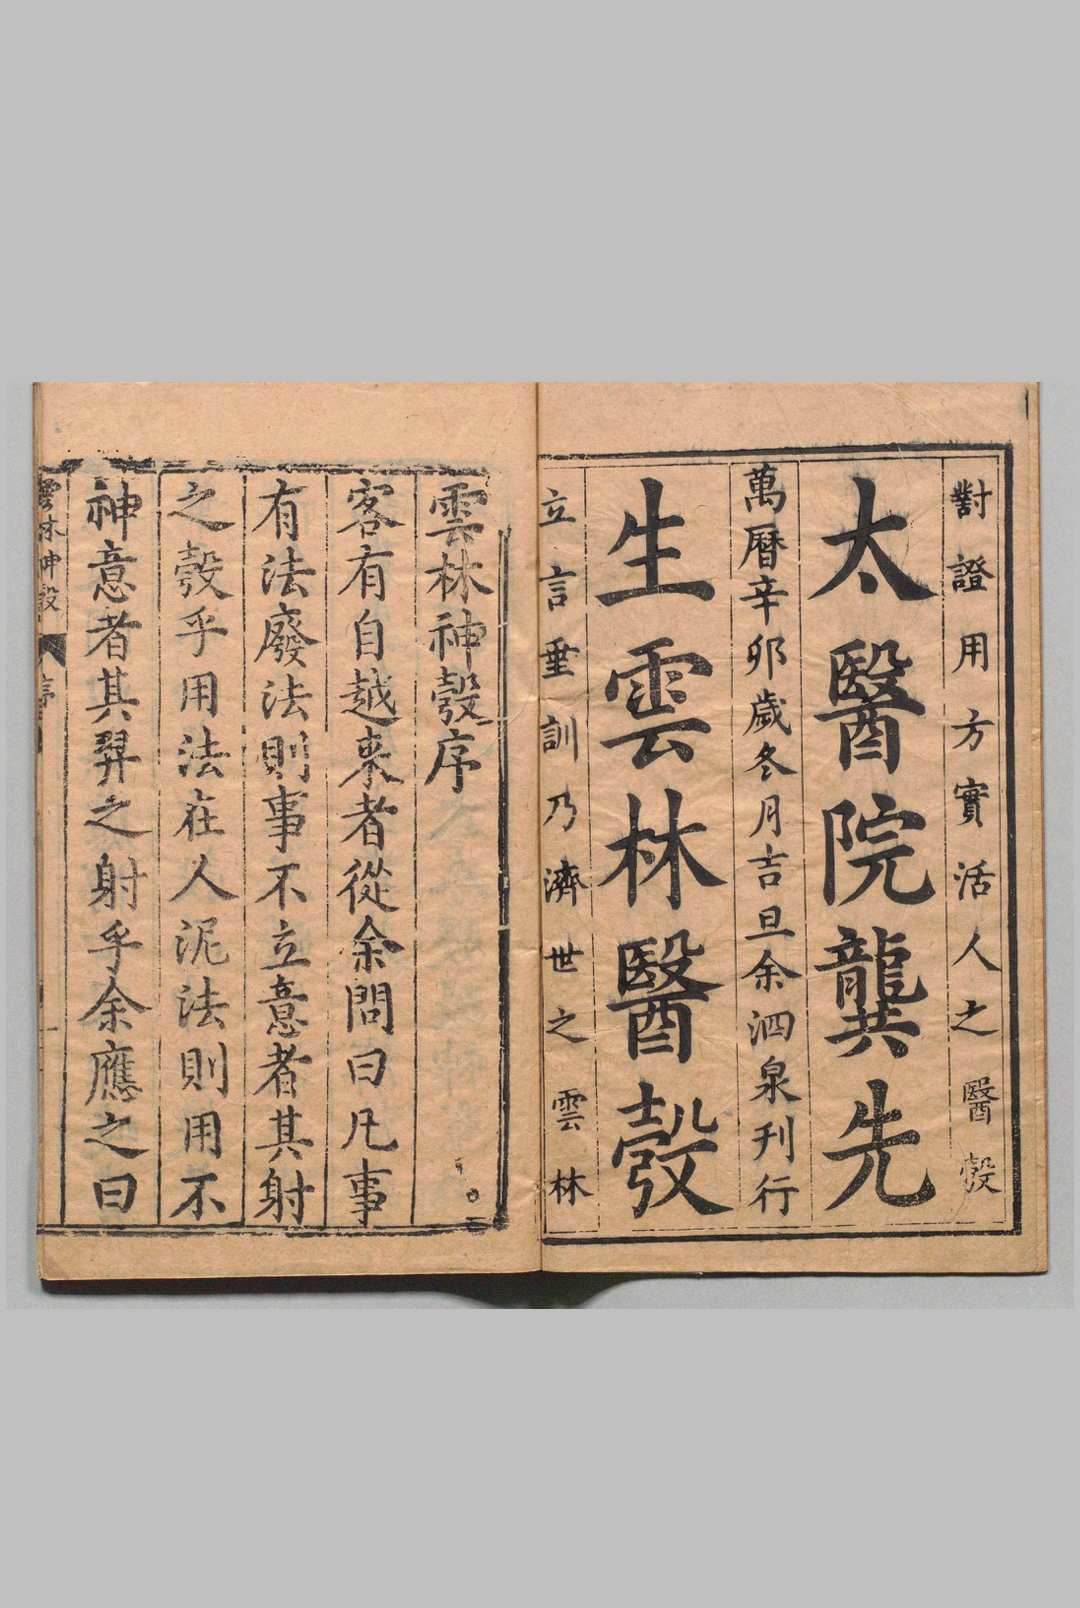 對證用方實活人之醫彀
太醫院龔先
萬曆辛卯歲冬月吉旦余泗泉刊行
生雲林醫彀
立言垂訓乃濟世之雲林
雲林神彀序
客有自越来者從余問曰凡事
有法廢法則事不立意者其射
之彀乎用法在人泥法則用不
神意者其羿之射乎余應之曰
雲林神彀 序